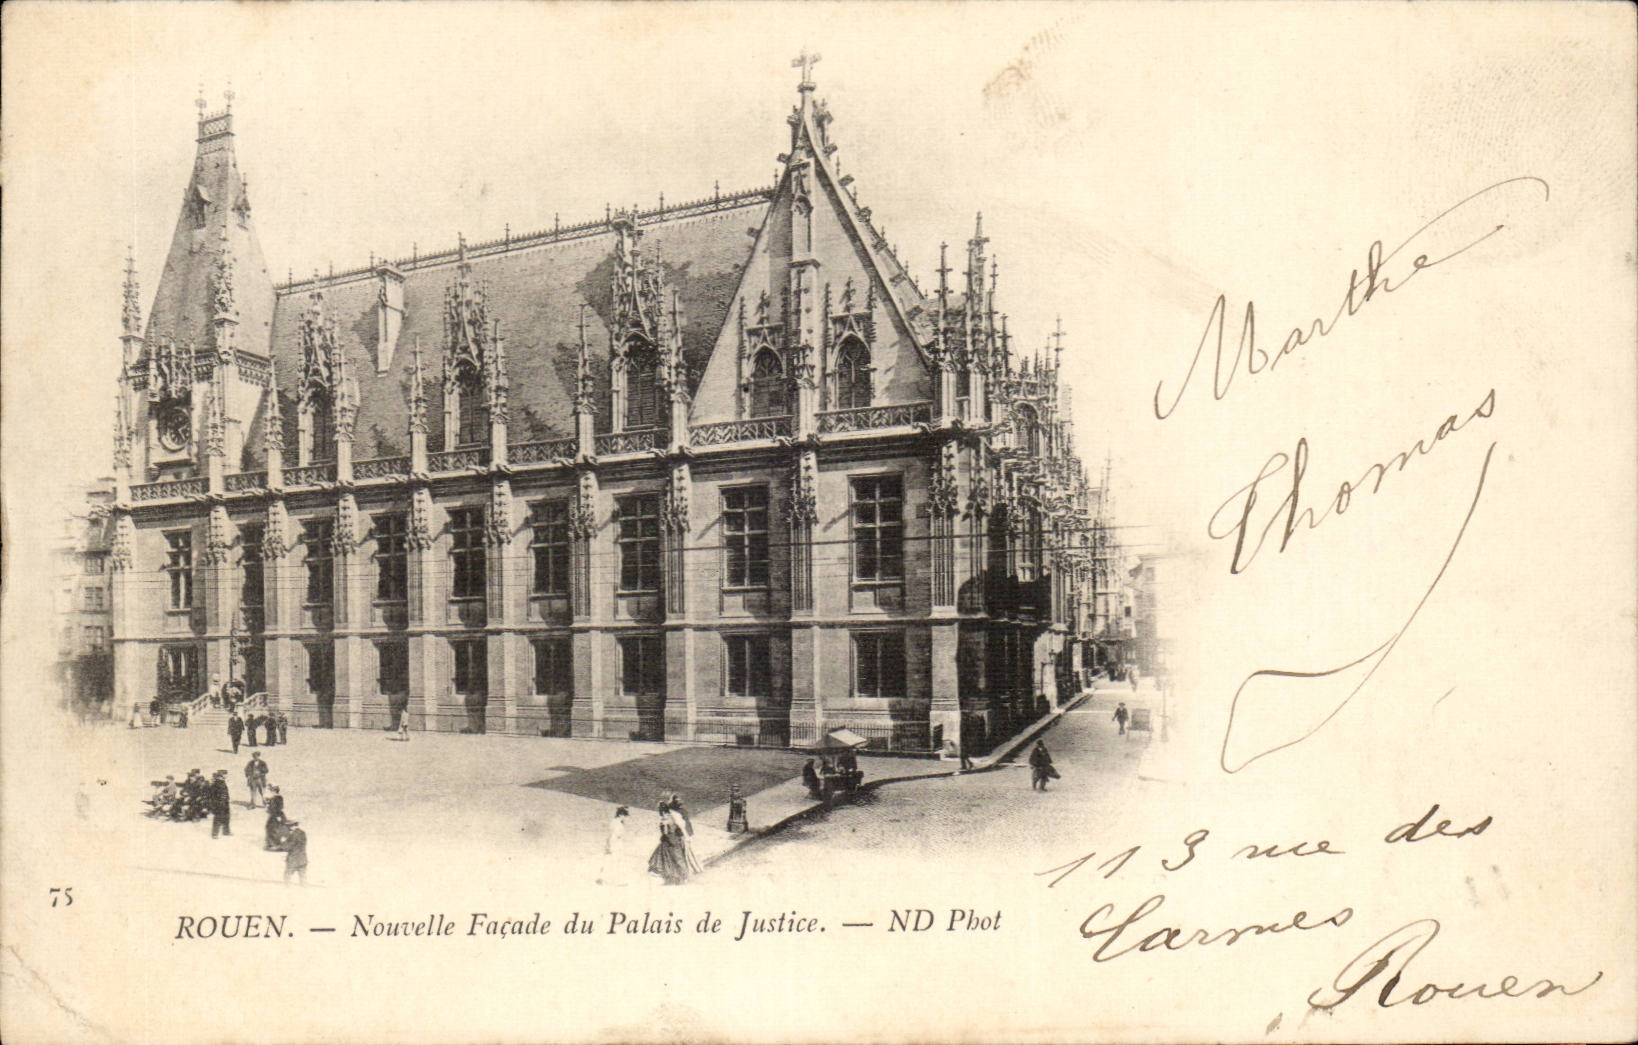 Marthe
Thomas
113 rue des
Carmes
Rouen
75
ROUEN. — Nouvelle Façade du Palais de Justice. — ND Phot